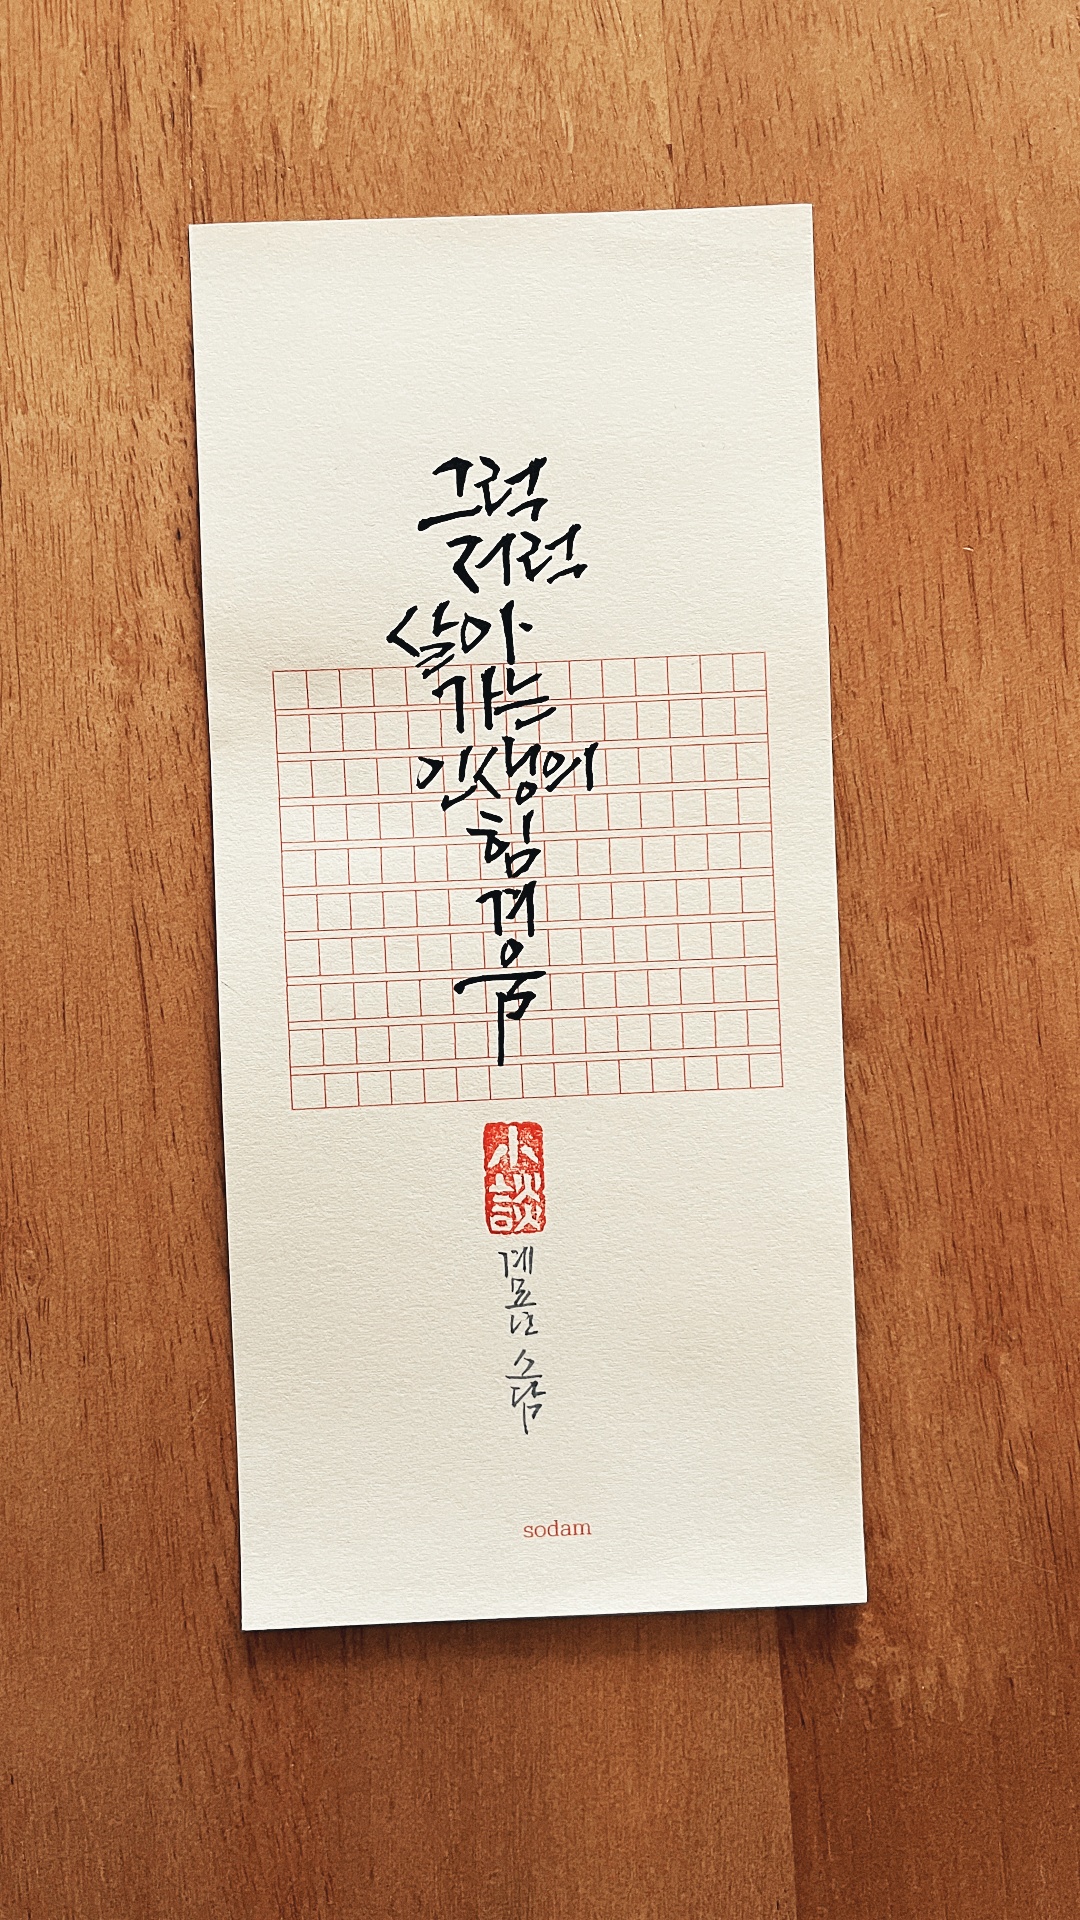 그럭
저럭
살아
가는
인생의
힘
겨
움
小
談
계
묘
년
소
담
sodam